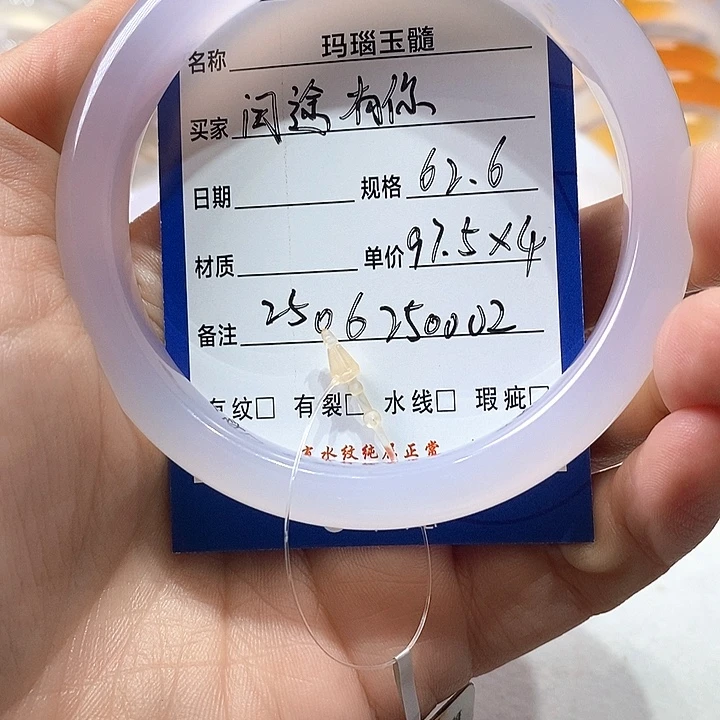 名称 玛瑙玉髓
买家 闫途有你
日期 规格 62.6
材质 单价 97.5×4
备注 2506250002
有纹□ 有裂□ 水线□ 瑕疵□
水纹纯属正常